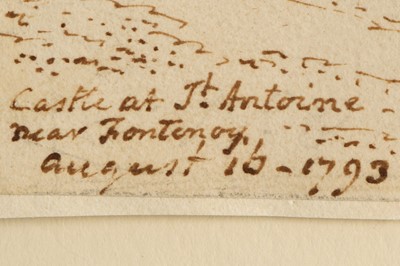 Castle at St Antoine
near Fontenoy,
August 10 - 1793